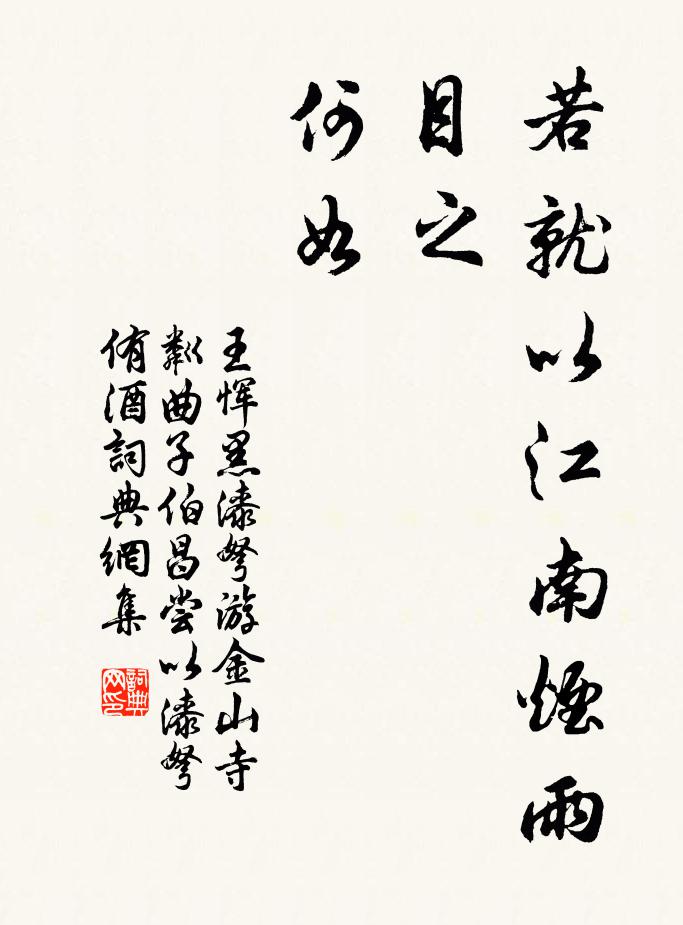 若就以江南煙雨
目之
何如
王惲黑漆弩游金山寺
鄰曲子伯昌嘗以漆弩
侑酒詞典網集
詞典
网印